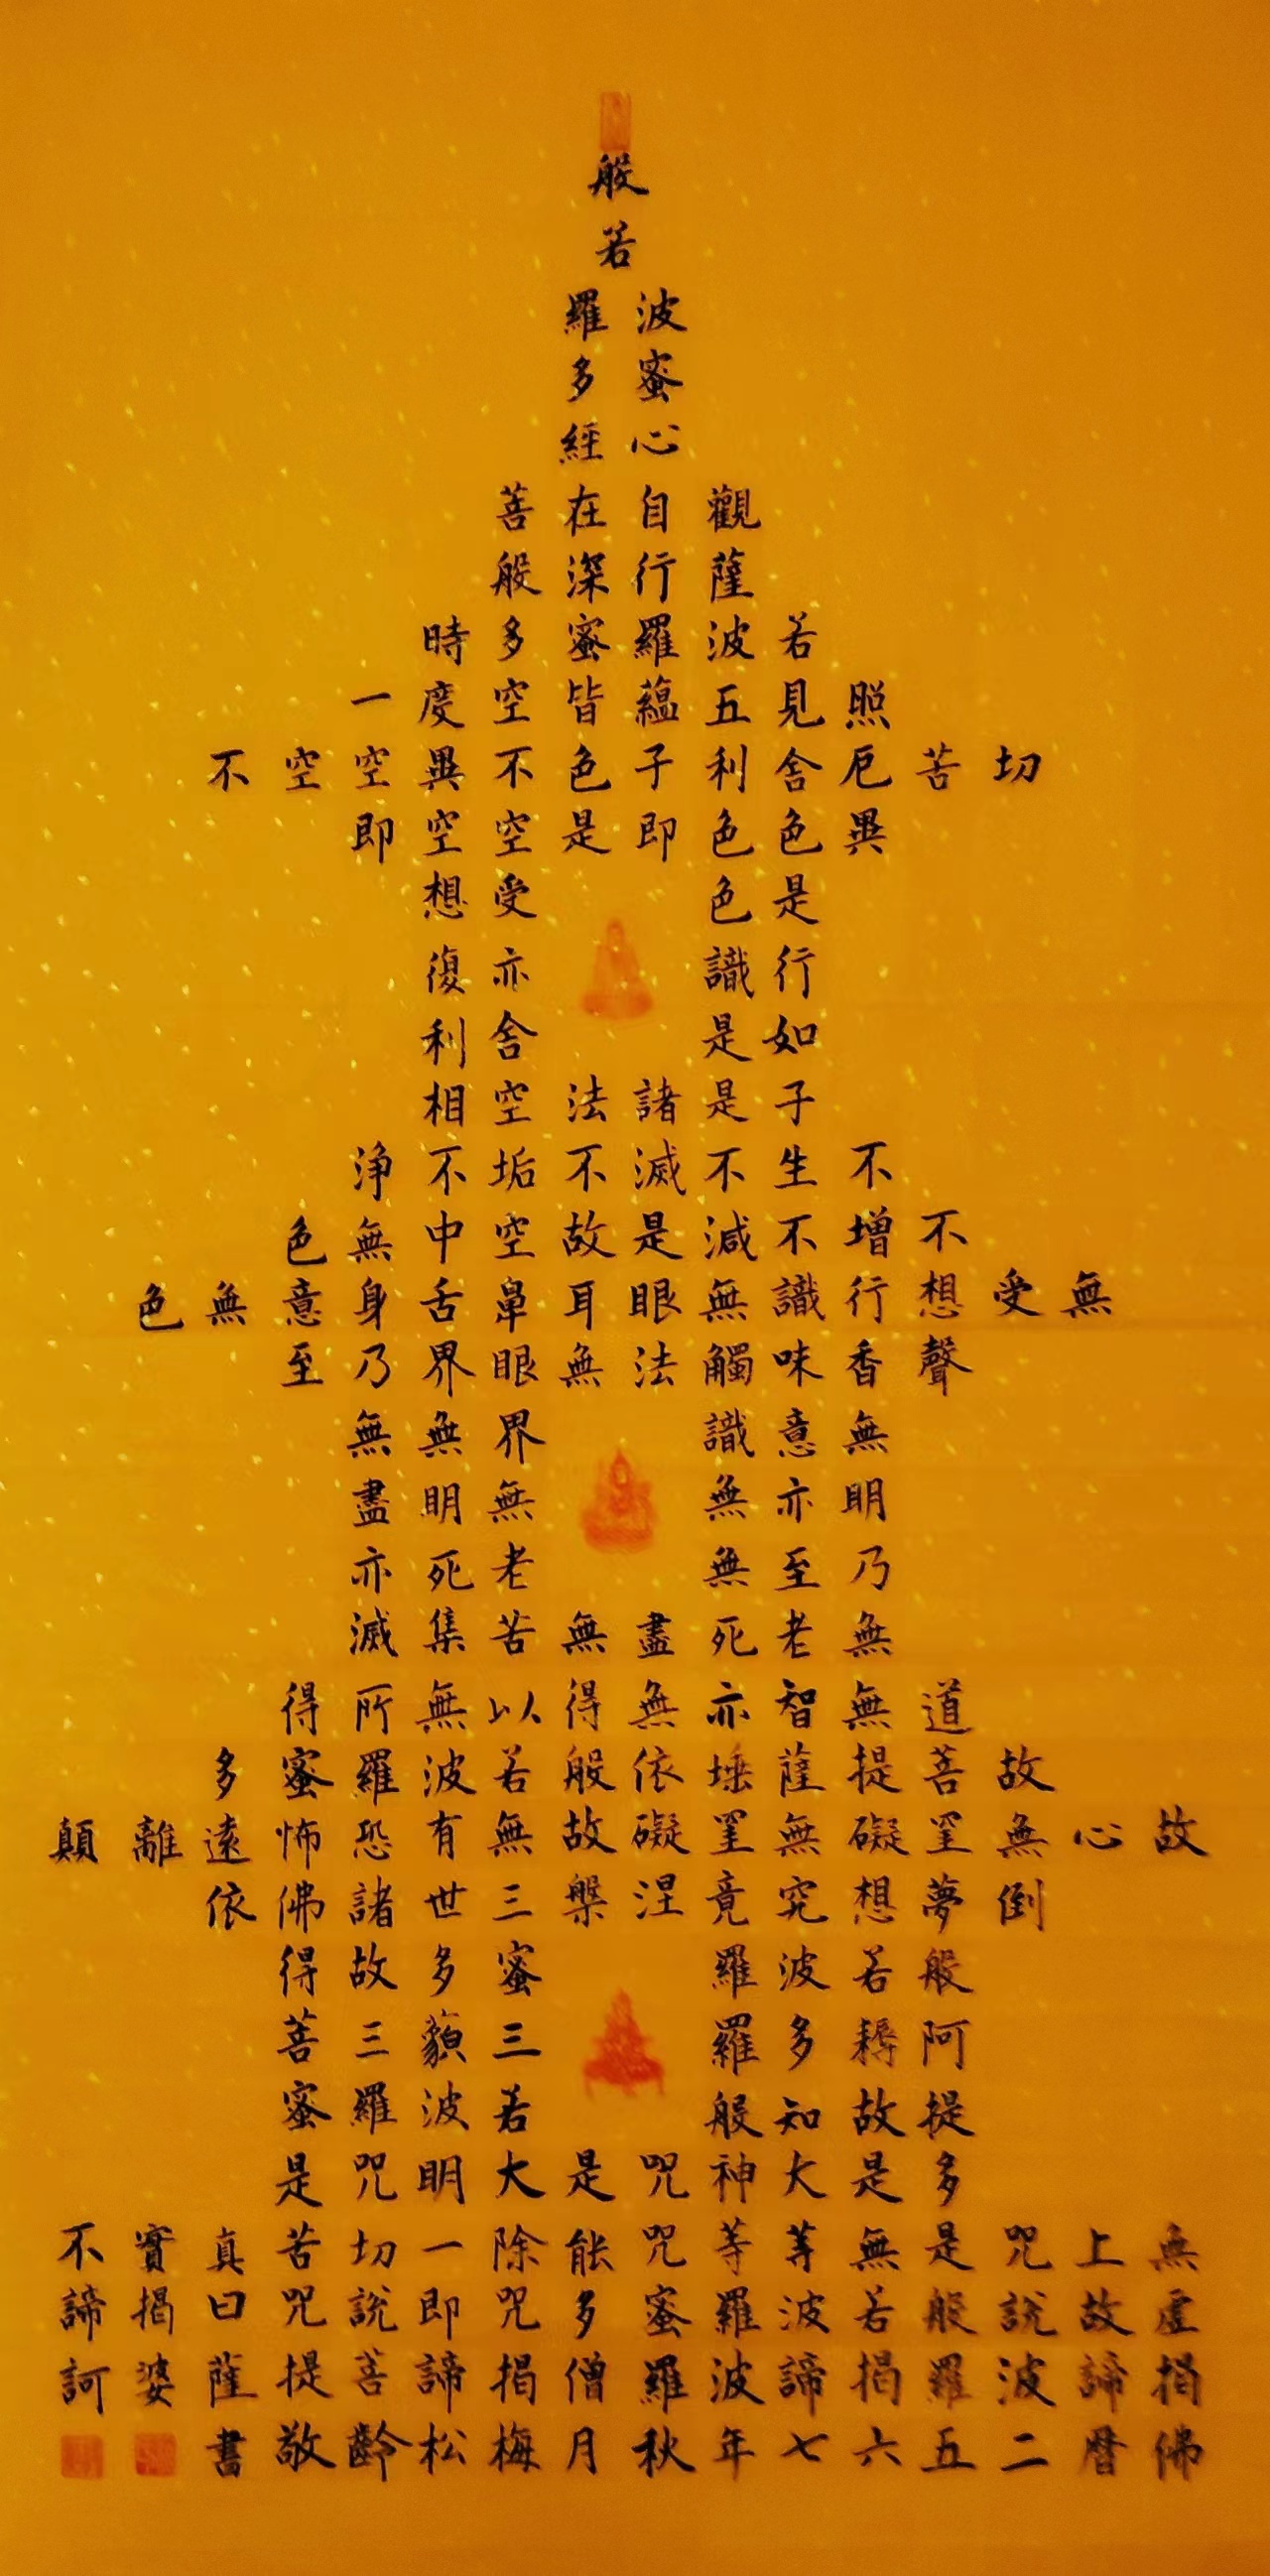 般
若
波羅
蜜多
心經
觀自在菩
薩行深般
若波羅蜜多時
照見五蘊皆空度一
切苦厄舍利子色不異空空不
異色色即是空空即
是色受想
行識亦復
如是舍利
子是諸法空相
不生不滅不垢不淨
不增不減是故空中無色
無受想行識無眼耳鼻舌身意無色
聲香味觸法無眼界乃至
無意識界無無
明亦無無明盡
乃至無老死亦
無老死盡無苦集滅
道無智亦無得以無所得
故菩提薩埵依般若波羅蜜多
故心無罣礙無罣礙故無有恐怖遠離顛
倒夢想究竟涅槃三世諸佛依
般若波羅蜜多故得
阿耨多羅三藐三菩
提故知般若波羅蜜
多是大神咒是大明咒是
無上咒是無等等咒能除一切苦真實不
虛故說般若波羅蜜多咒即說咒曰揭諦
揭諦波羅揭諦波羅僧揭諦菩提薩婆訶
佛曆二五六七年秋月梅松齡敬書